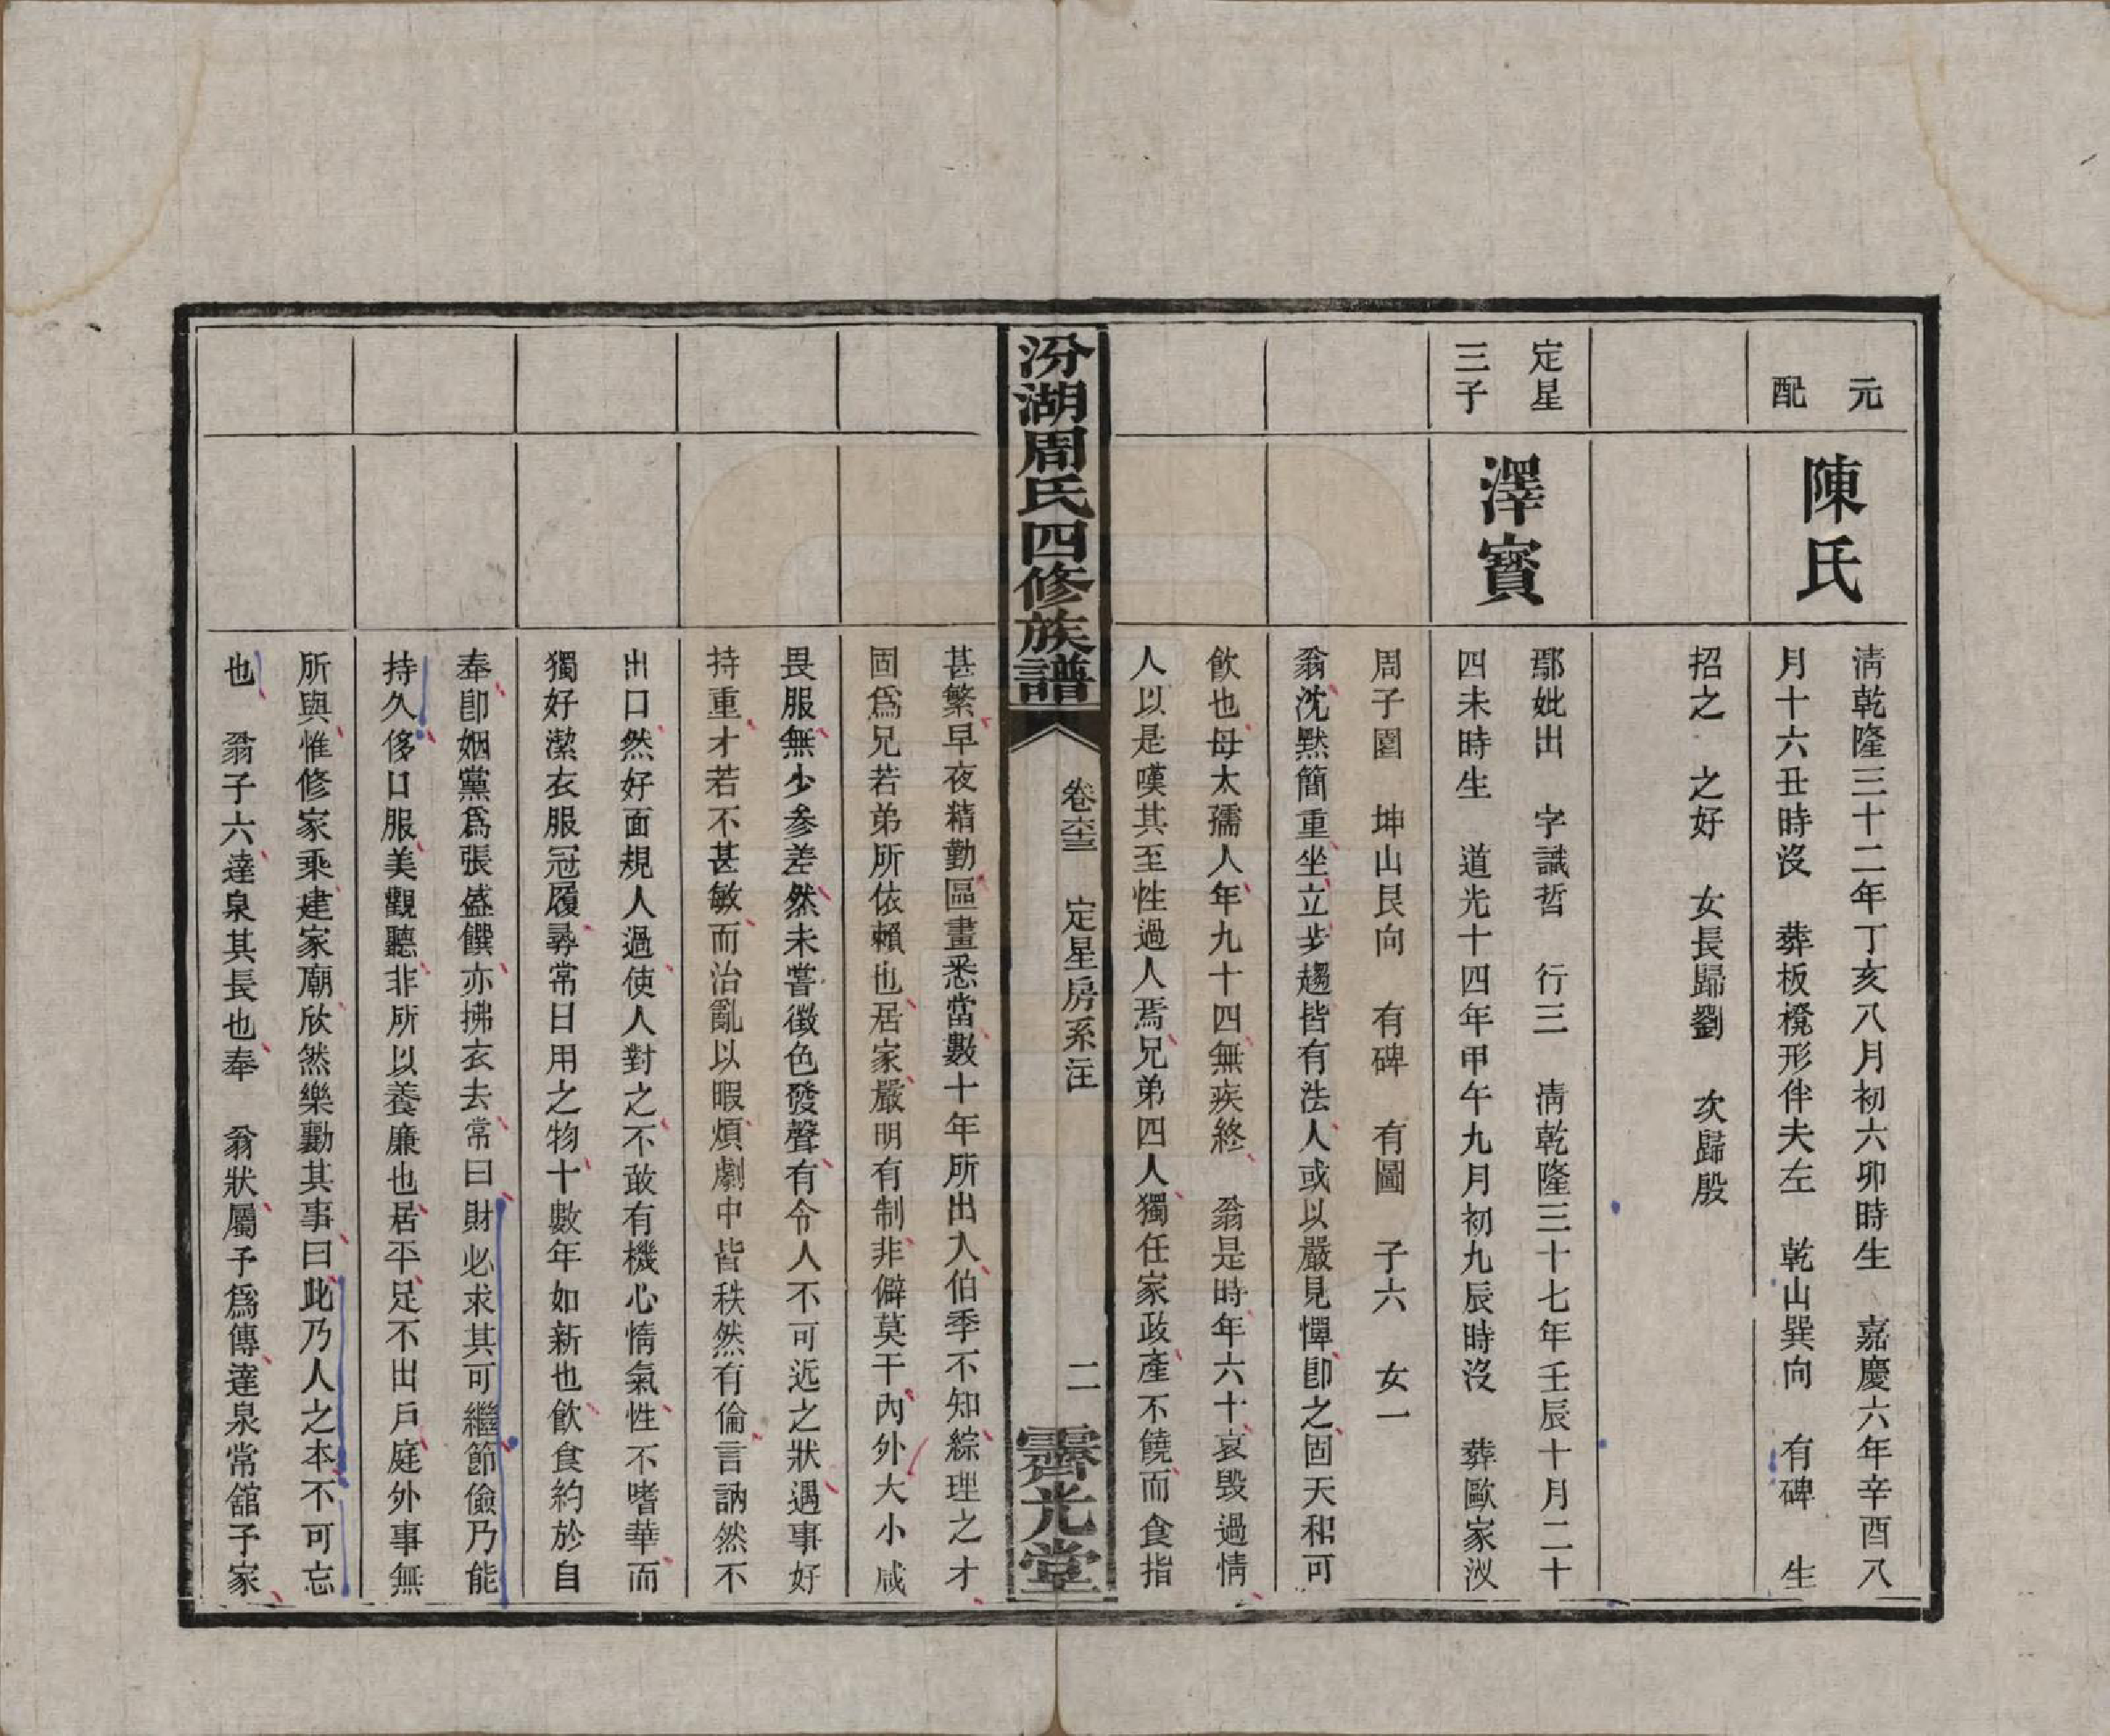 元
配
陳氏
淸乾隆三十二年丁亥八月初六卯時生 嘉慶六年辛酉八
月十六丑時沒 葬板櫈形伴夫左 乾山巽向 有碑 生
招之 之好 女長歸劉 次歸殷
定星
三子
澤寶
鄢妣出 字識哲 行三 淸乾隆三十七年壬辰十月二十
四未時生 道光十四年甲午九月初九辰時沒 葬歐家㲼
周子園 坤山艮向 有碑 有圖 子六 女一
翁沈默簡重坐立步趨皆有法人或以嚴見憚卽之固天和可
飲也母太孺人年九十四無疾終 翁是時年六十哀毀過情
人以是嘆其至性過人焉兄弟四人獨任家政產不饒而食指
汾湖周氏四修族譜
卷六十三 定星房系注
二
霽光堂
甚繁早夜精勤區畫悉當數十年所出入伯季不知綜理之才
固爲兄若弟所依賴也居家嚴明有制非僻莫干內外大小咸
畏服無少參差然未嘗徵色發聲有令人不可近之狀遇事好
持重才若不甚敏而治亂以暇煩劇中皆秩然有倫言訥然不
出口然好面規人過使人對之不敢有機心惰氣性不嗜華而
獨好潔衣服冠履尋常日用之物十數年如新也飲食約於自
奉卽姻黨爲張盛饌亦拂衣去常曰財必求其可繼節儉乃能
持久侈口服美觀聽非所以養廉也居平足不出戶庭外事無
所與惟修家乘建家廟欣然樂勷其事曰此乃人之本不可忘
也 翁子六達泉其長也奉 翁狀屬予爲傳達泉常舘予家